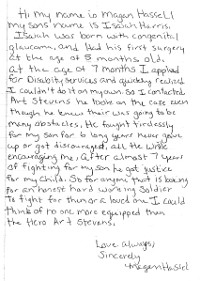 Hi my name is Magan Hassell
my sons name is Isaiah Harris.
Isaiah was born with congenital
glaucoma, and Had his first surgery
at the age of 5 months old.
At the age of 7 months I applied
for Disability services and quickly realized
I couldn't do it on my own. So I contacted
Art Stevens he took on the case even
though he knew their was going to be
many obstacles. He fought tirelessly
for my son for 6 long years never gave
up or got discouraged, all the while
encouraging me, after almost 7 years
of fighting for my son he got justice
for my child. So for anyone that is looking
for an honest hard working Soldier
To fight for them or a loved one I could
think of no one more equipped than
the Hero Art Stevens.
Love always,
Sincerely
Magan Hassell